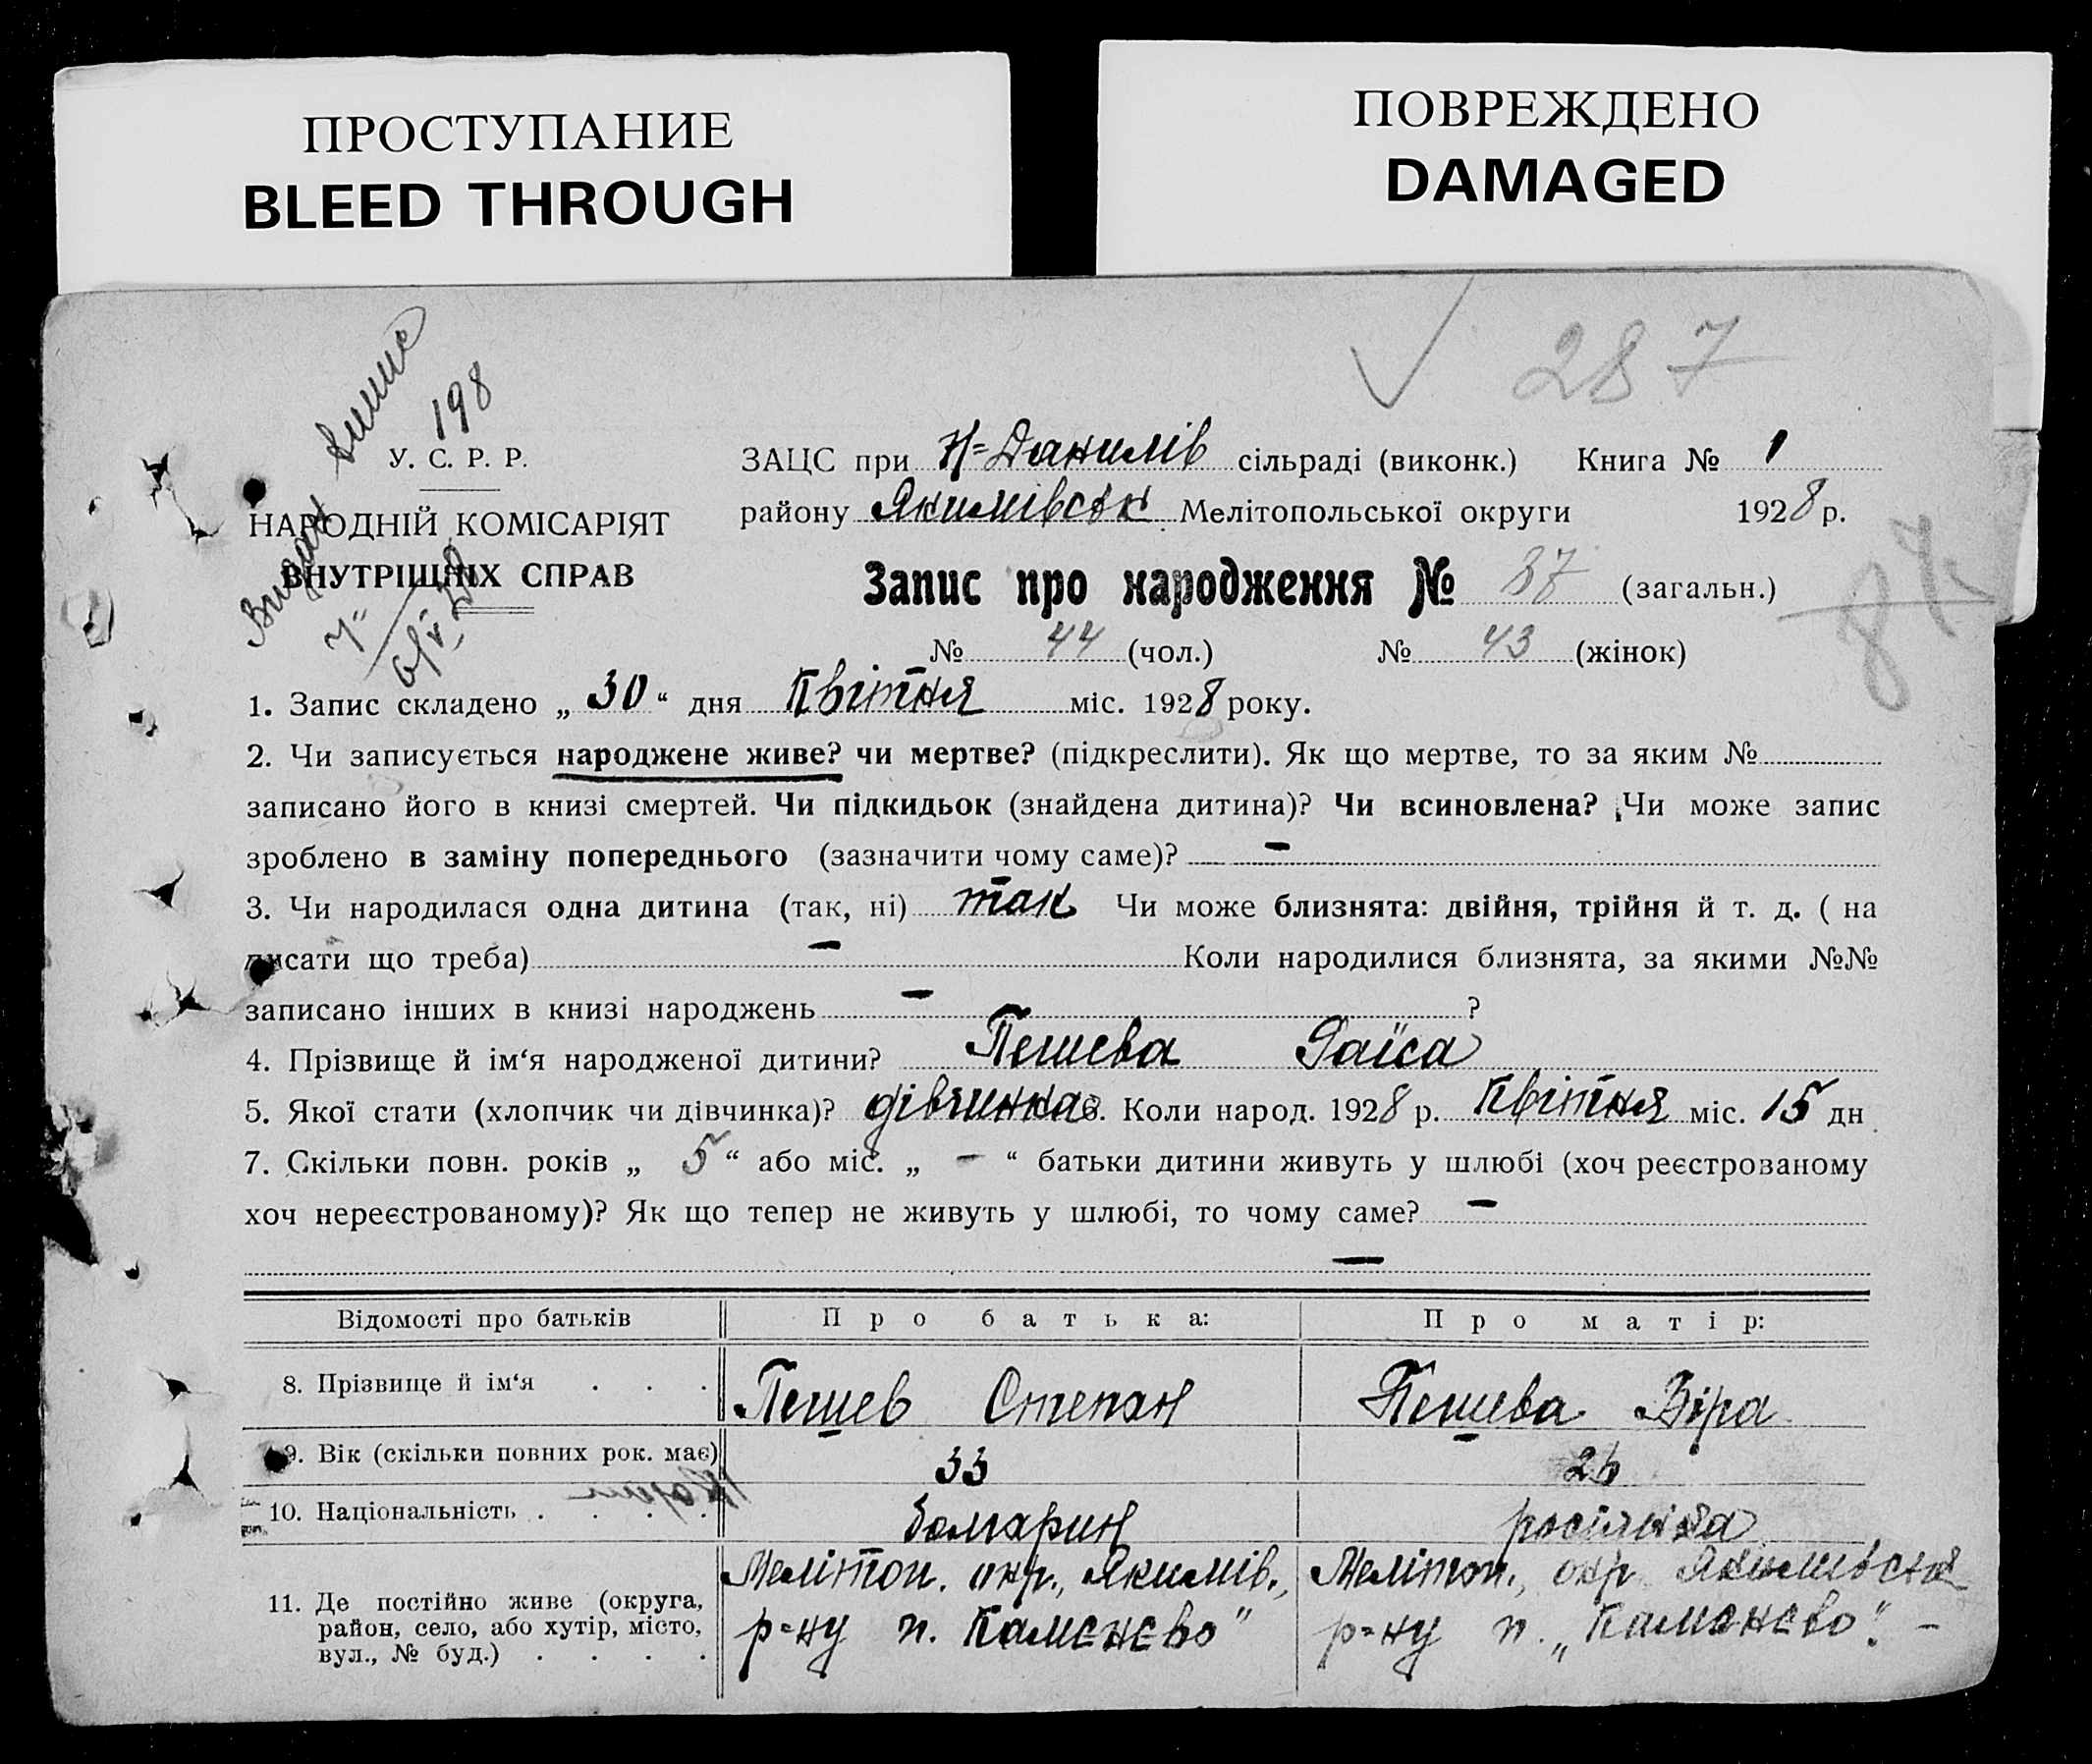 ПРОСТУПАНИЕ
BLEED THROUGH
ПОВРЕЖДЕНО
DAMAGED
287
Видан випис
198
У. С. Р. Р.
НАРОДНІЙ КОМІСАРІЯТ
ВНУТРІШНІХ СПРАВ
ЗАЦС при Н=Данилів сільраді (виконк.) Книга № 1
району Якимівськ Мелітопольської округи 1928 р.
Запис про народження № 87 (загальн.)
87
№ 44 (чол.) № 43 (жінок)
1. Запис складено „ 30 “ дня Квітня міс. 1928 року.
2. Чи записується народжене живе? чи мертве? (підкреслити). Як що мертве, то за яким №
записано його в книзі смертей. Чи підкидьок (знайдена дитина)? Чи всиновлена? Чи може запис
зроблено в заміну попереднього (зазначити чому саме)? —
3. Чи народилася одна дитина (так, ні) так Чи може близнята: двійня, трійня й т. д. ( на
писати що треба) — Коли народилися близнята, за якими №№
записано інших в книзі народжень — ?
4. Прізвище й ім‘я народженої дитини? Пешева Раїса
5. Якої стати (хлопчик чи дівчинка)? дівчинка 6. Коли народ. 1928 р. Квітня міс. 15 дн
7. Скільки повн. років „ 5 “ або міс. „ — “ батьки дитини живуть у шлюбі (хоч реєстрованому
хоч нереєстрованому)? Як що тепер не живуть у шлюбі, то чому саме? —
—
Відомості про батьків Про батька: Про матір:
8. Прізвище й ім‘я . . . Пешев Степан Пешева Віра
9. Вік (скільки повних рок. має) 33 26
10. Національність . . . . болгарин росіянка
11. Де постійно живе (округа,
район, село, або хутір, місто,
вул., № буд.) . . . .
Мелітоп. окр., Якимів.,
р=ну п. Каменєво"
Мелітоп., окр. Якимівськ
р=ну п. „Каменєво". –